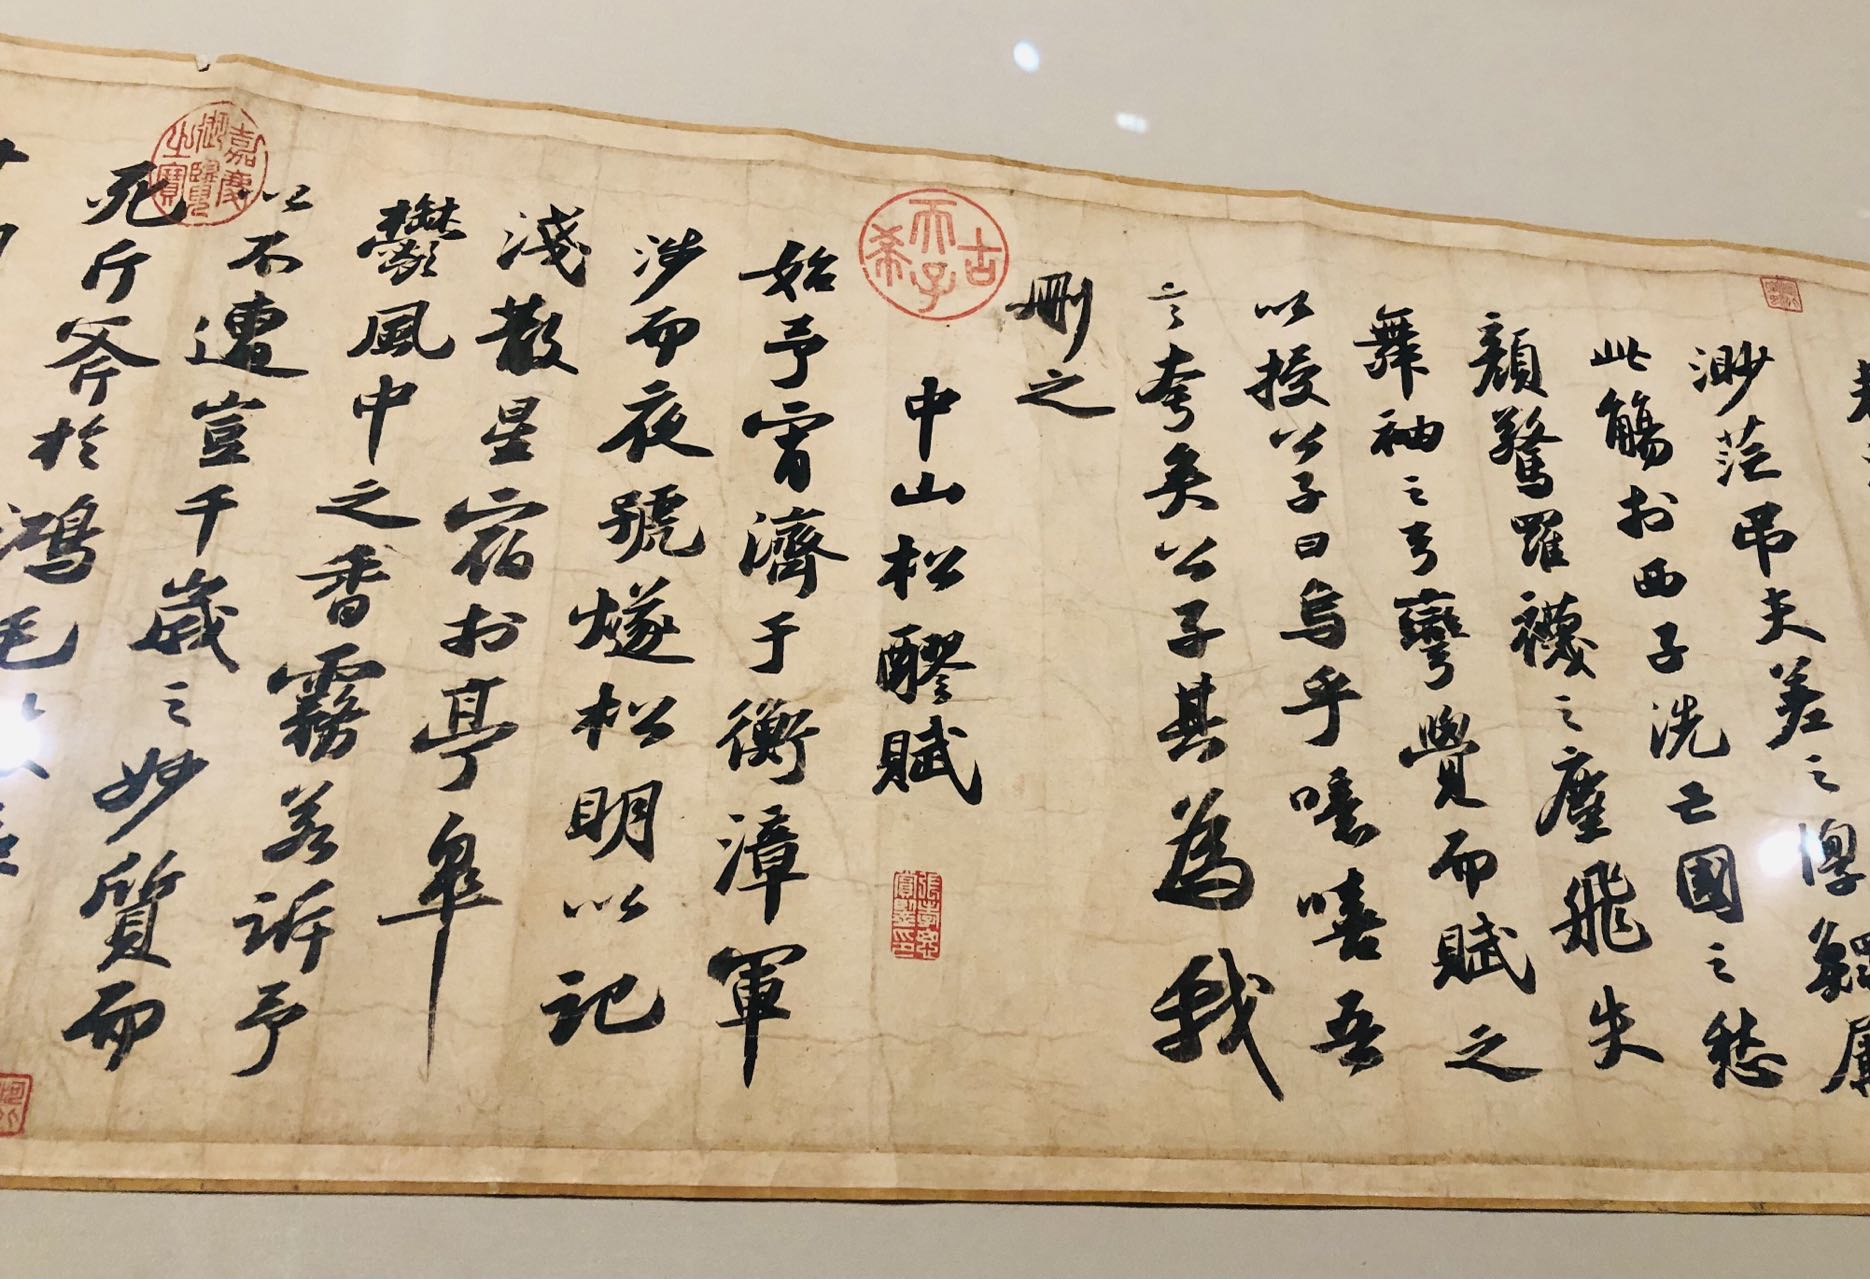 渺茫弔夫差之惸鰥屬
此觴扵西子洗亡國之愁
顏驚羅襪之塵飛失
舞袖之弓彎覺而賦之
以授公子曰烏乎噫嘻吾
言夸矣公子其為我
刪之
古希天子
中山松醪賦
張孝思賞鑒印
始予宵濟于衡漳軍
涉而夜號燧松明以記
淺散星宿扵亭皋
鬱風中之香霧若訴予
以不遭豈千歲之妙質而
嘉慶御覽之寶
死斤斧於鴻毛